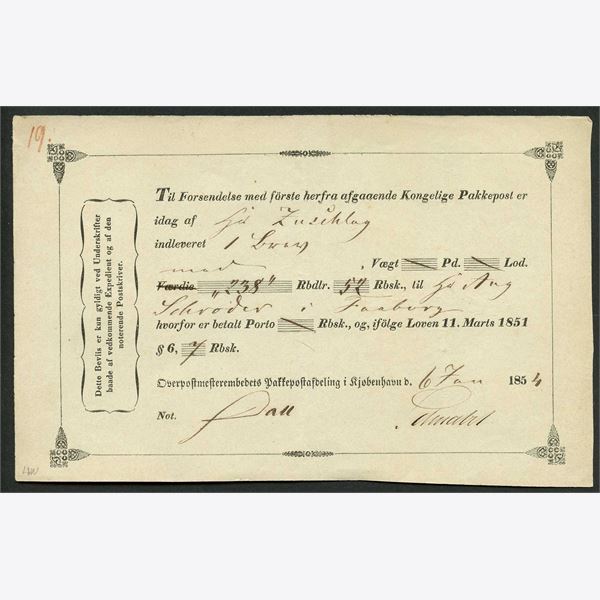 19.
Dette Beviis er kun gyldigt ved Underskrifter
baade af vedkommende Expedient og af den
noterende Postskriver.
Til Forsendelse med förste herfra afgaaende Kongelige Pakkepost er
idag af Hr Zuschlag
indleveret 1 Brev
med , Vægt Pd. Lod.
Værdie "238" Rbdlr. 52 Rbsk., til Hr Aug
Schrøder i Faaborg
hvorfor er betalt Porto Rbsk., og, ifölge Loven 11. Marts 1851
§ 6, 7 Rbsk.
Overpostmesterembedets Pakkepostafdeling i Kjøbenhavn d. 6 Jan 1854
Not.